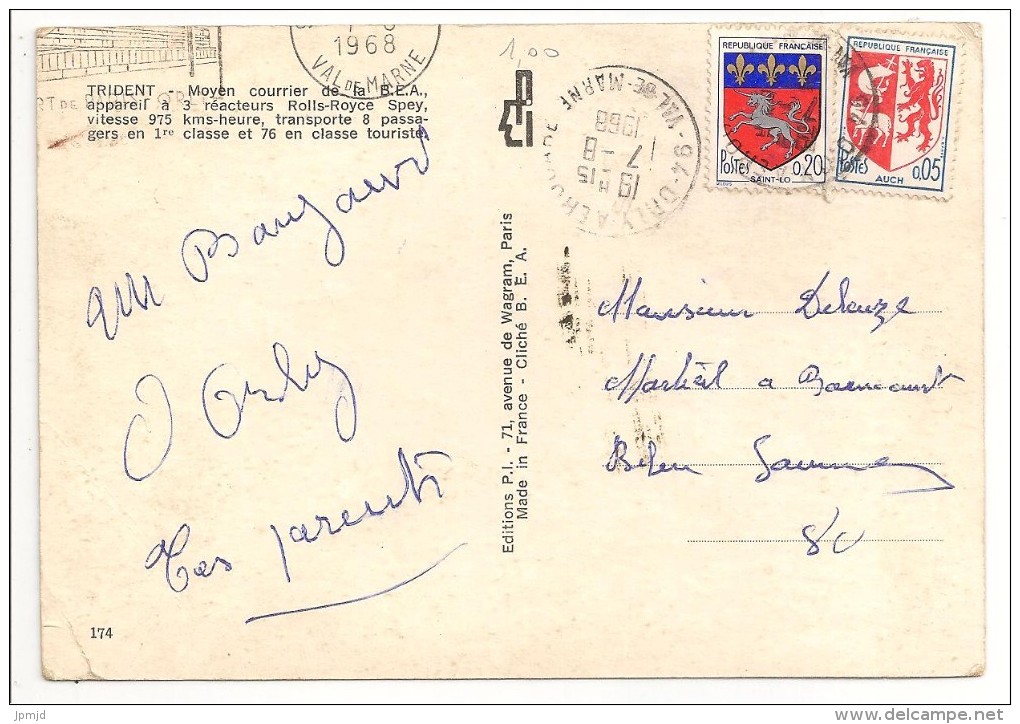 1968
VAL DE MARNE
TRIDENT - Moyen courrier de la B.E.A.,
appareil à 3 réacteurs Rolls-Royce Spey,
vitesse 975 kms-heure, transporte 8 passa-
gers en 1re classe et 76 en classe touriste.
1,00
94-ORLY AÉROGARE
VAL-DE-MARNE
19 H 15
17 - 8
1968
REPUBLIQUE FRANÇAISE
POSTES 0,20
SAINT-LO
REPUBLIQUE FRANÇAISE
POSTES 0,05
AUCH
Bonjour
d'Orly
Tes parents
Editions P.I. - 71, avenue de Wagram, Paris
Made in France - Cliché B. E. A.
Monsieur Deleuze
à
80
174
jpmjd
www.delcampe.net